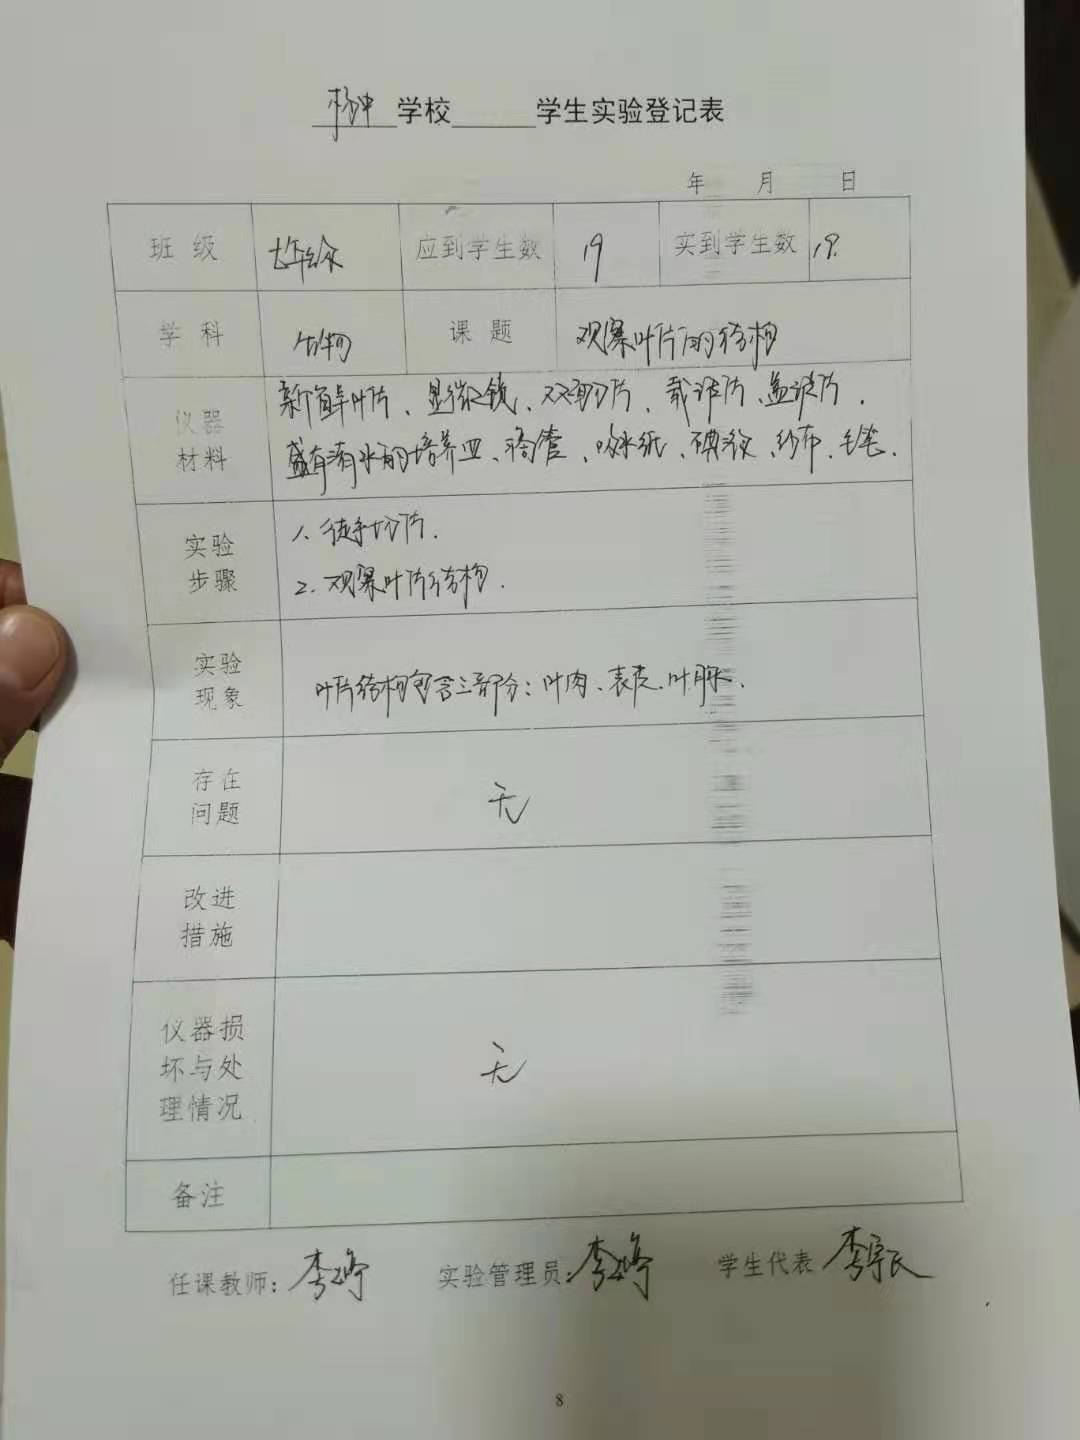 杨中学校 学生实验登记表
年 月 日
班级 七年级 应到学生数 19 实到学生数 19.
学科 生物 课题 观察叶片的结构
仪器材料 新鲜叶片、显微镜、双面刀片、载玻片、盖玻片.
盛有清水的培养皿、滴管、吸水纸、碘液、纱布、毛笔.
实验步骤 1.徒手切片.
2.观察叶片结构.
实验现象 叶片结构包含三部分:叶肉、表皮、叶脉.
存在问题 无
改进措施
仪器损坏与处理情况 无
备注
任课教师: 李婷 实验管理员: 李婷 学生代表 李宇民
8